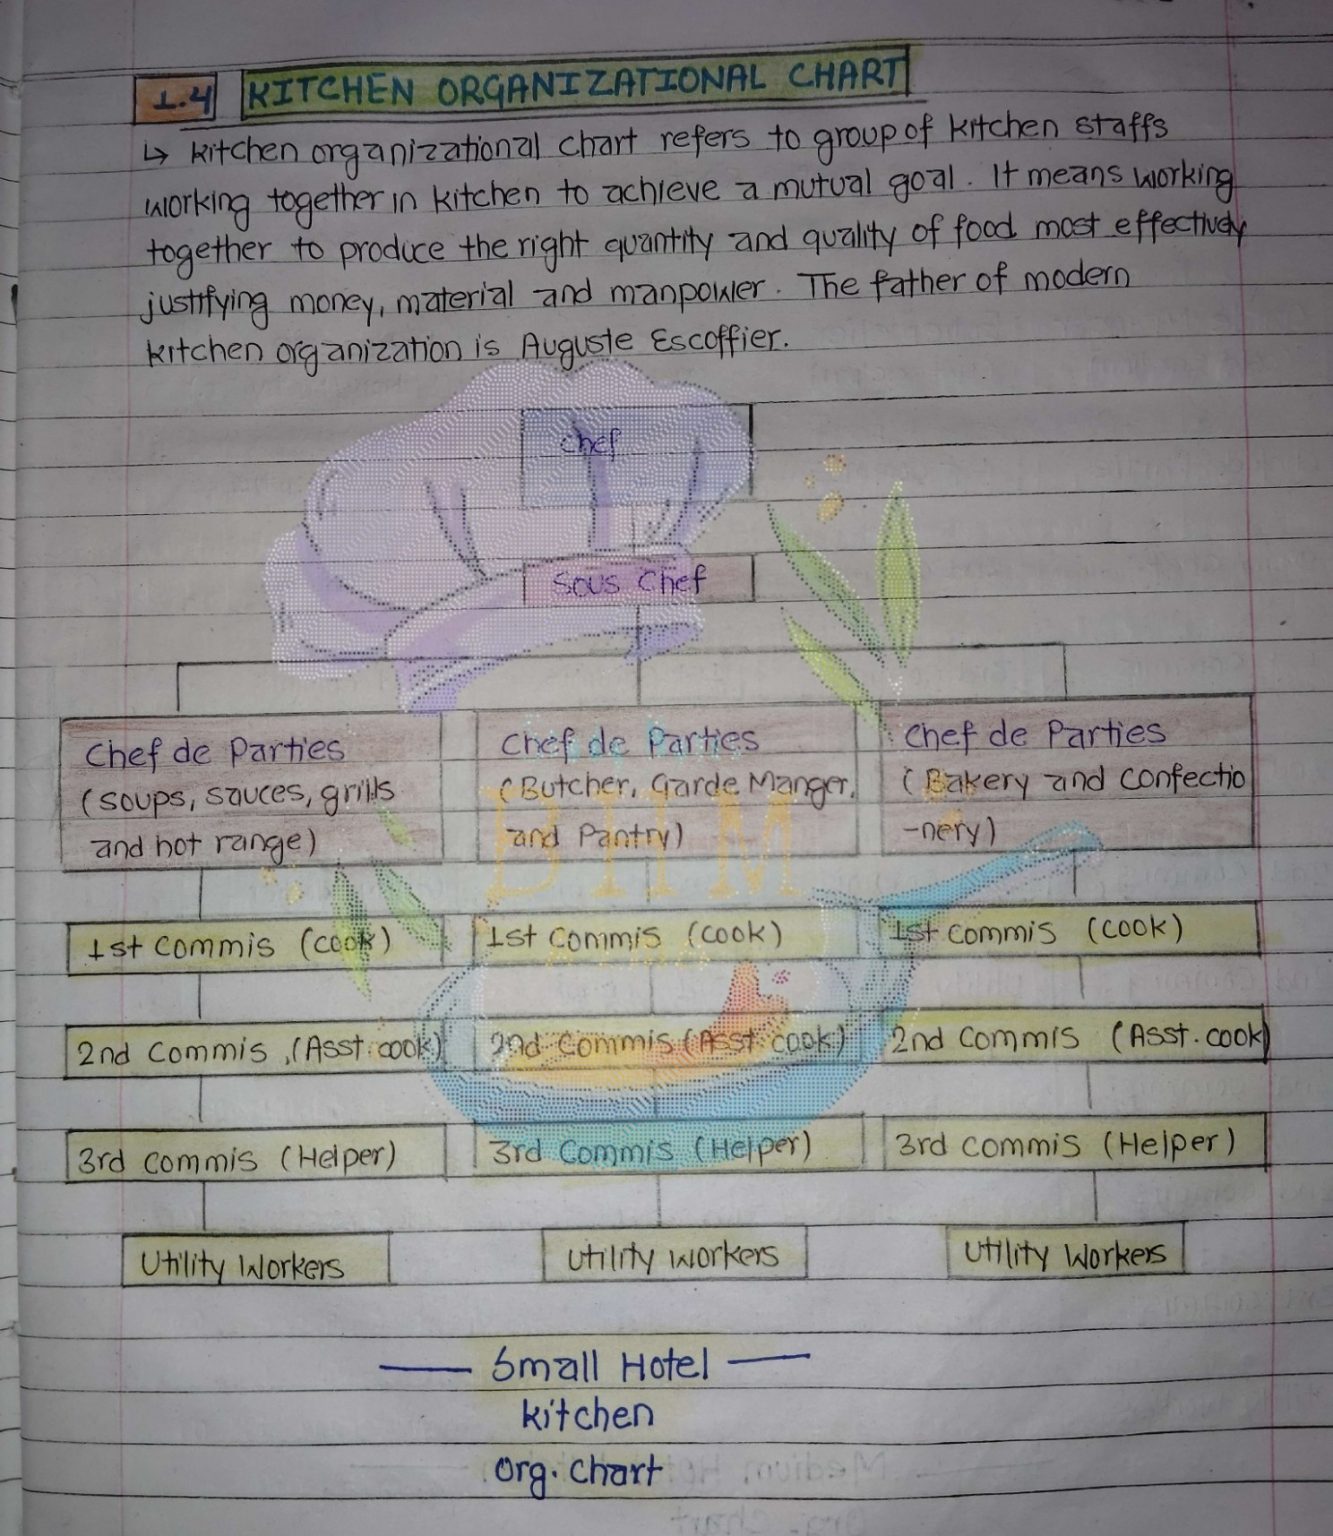 1.4 KITCHEN ORGANIZATIONAL CHART
↳ kitchen organizational chart refers to group of kitchen staffs
working together in kitchen to achieve a mutual goal. It means working
together to produce the right quantity and quality of food most effectively
justifying money, material and manpower. The father of modern
kitchen organization is Auguste Escoffier.
Chef
Sous Chef
Chef de Parties
(soups, sauces, grills
and hot range)
Chef de Parties
(Butcher, Garde Manger,
and Pantry)
Chef de Parties
(Bakery and confectio
-nery)
BHM
1st Commis (cook)
1st Commis (cook)
1st Commis (cook)
2nd Commis (Asst. cook)
2nd Commis (Asst. cook)
2nd Commis (Asst. cook)
3rd Commis (Helper)
3rd Commis (Helper)
3rd Commis (Helper)
Utility Workers
Utility Workers
Utility Workers
Small Hotel
kitchen
org. chart